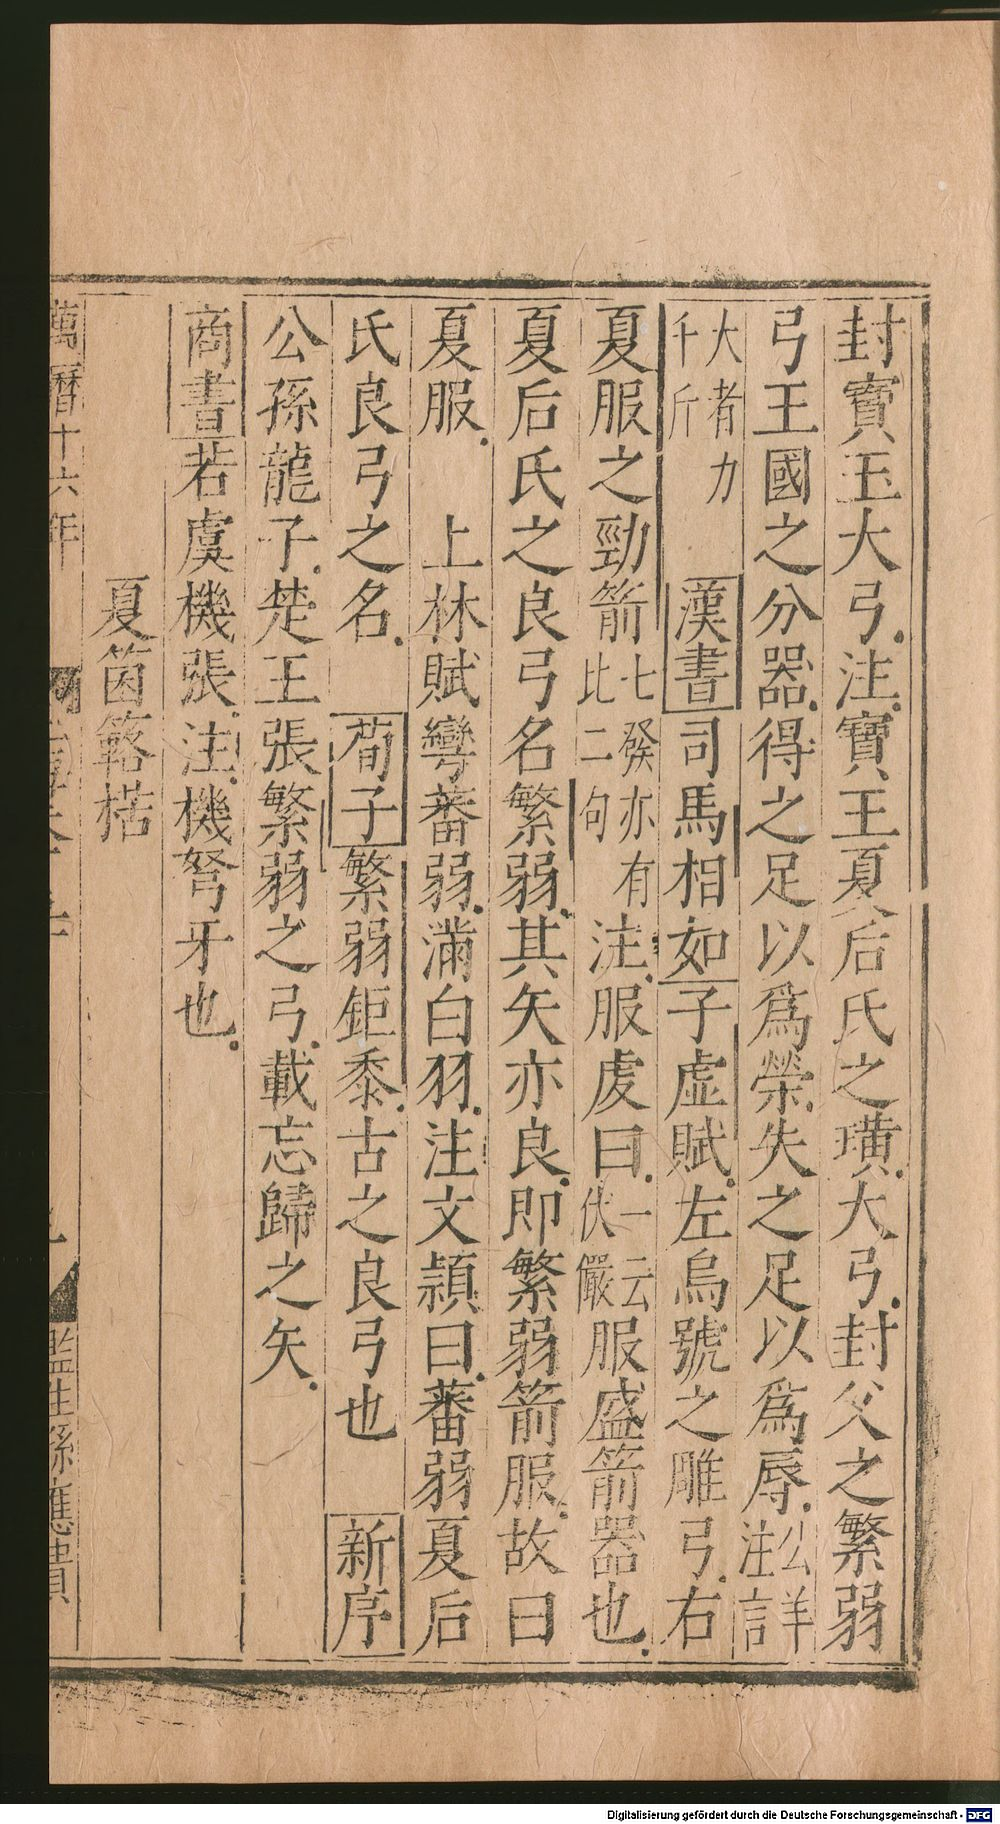 封寶玉大弓注寶王夏后氏之璜大弓封父之繁弱
弓王國之分器得之足以爲榮失之足以爲辱公羊注言
大者力千斤　漢書司馬相如子虛賦左烏號之雕弓右
夏服之勁箭七發亦有比二句注服虔曰一云伏儼服盛箭器也
夏后氏之良弓名繁弱其矢亦良即繁弱箭服故曰
夏服　上林賦彎蕃弱滿白羽注文頴曰蕃弱夏后
氏良弓之名　荀子繁弱鉅黍古之良弓也　新序
公孫龍子楚王張繁弱之弓載忘歸之矢
商書若虞機張注機弩牙也
夏箘簵楛
萬曆十六年
監生孫應
Digitalisierung gefördert durch die Deutsche Forschungsgemeinschaft - DFG